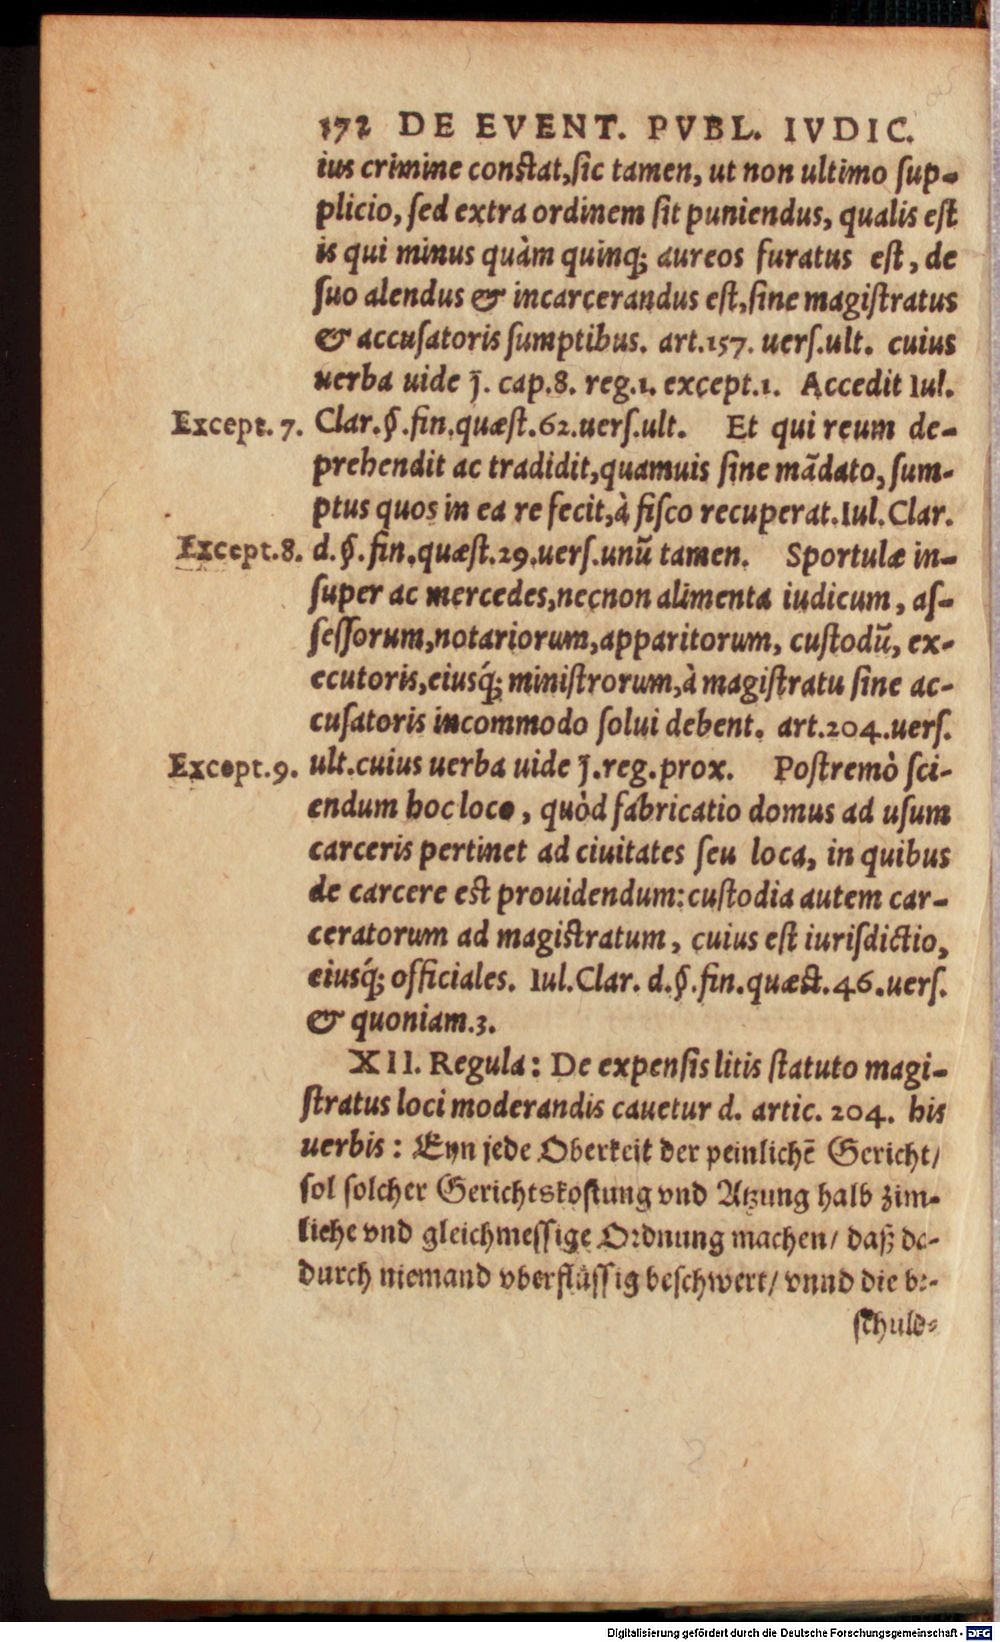 172 DE EVENT. PVBL. IVDIC.
ius crimine constat, sic tamen, ut non ultimo sup-
plicio, sed extra ordinem sit puniendus, qualis est
is qui minus quàm quinq; aureos furatus est, de
suo alendus & incarcerandus est, sine magistratus
& accusatoris sumptibus. art.157. uers.ult. cuius
uerba uide j̄. cap.8. reg.1. except.1. Accedit Iul.
Except. 7. Clar.§.fin.quæst.62.uers.ult. Et qui reum de-
prehendit ac tradidit, quamuis sine mãdato, sum-
ptus quos in ea re fecit, à fisco recuperat. Iul. Clar.
Except. 8. d.§.fin.quæst.29.uers.unũ tamen. Sportulæ in-
super ac mercedes, necnon alimenta iudicum, as-
sessorum, notariorum, apparitorum, custodũ, ex-
ecutoris, eiusq́; ministrorum, à magistratu sine ac-
cusatoris incommodo solui debent. art.204.uers.
Except. 9. ult.cuius uerba uide j̄.reg.prox. Postremò sci-
endum hoc loco, quòd fabricatio domus ad usum
carceris pertinet ad ciuitates seu loca, in quibus
de carcere est prouidendum: custodia autem car-
ceratorum ad magistratum, cuius est iurisdictio,
eiusq́; officiales. Iul. Clar. d.§.fin.quæst.46.uers.
& quoniam.3.
XII. Regula: De expensis litis statuto magi-
stratus loci moderandis cauetur d. artic. 204. his
uerbis: Eyn jede Oberkeit der peinlichẽ Gericht/
sol solcher Gerichtskostung vnd Atzung halb zim-
liche vnd gleichmessige Ordnung machen/ daß da-
durch niemand vberflüssig beschwert/ vnnd die be-
schuld-
Digitalisierung gefördert durch die Deutsche Forschungsgemeinschaft - DFG